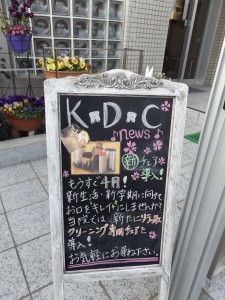 K D C
news
新チェア
導入!
もうすぐ4月!
新生活・新学期に向けて
お口をキレイにしませんか?
当院では、新たに
クリーニング専用チェアを
導入!
お気軽にお尋ね下さい。